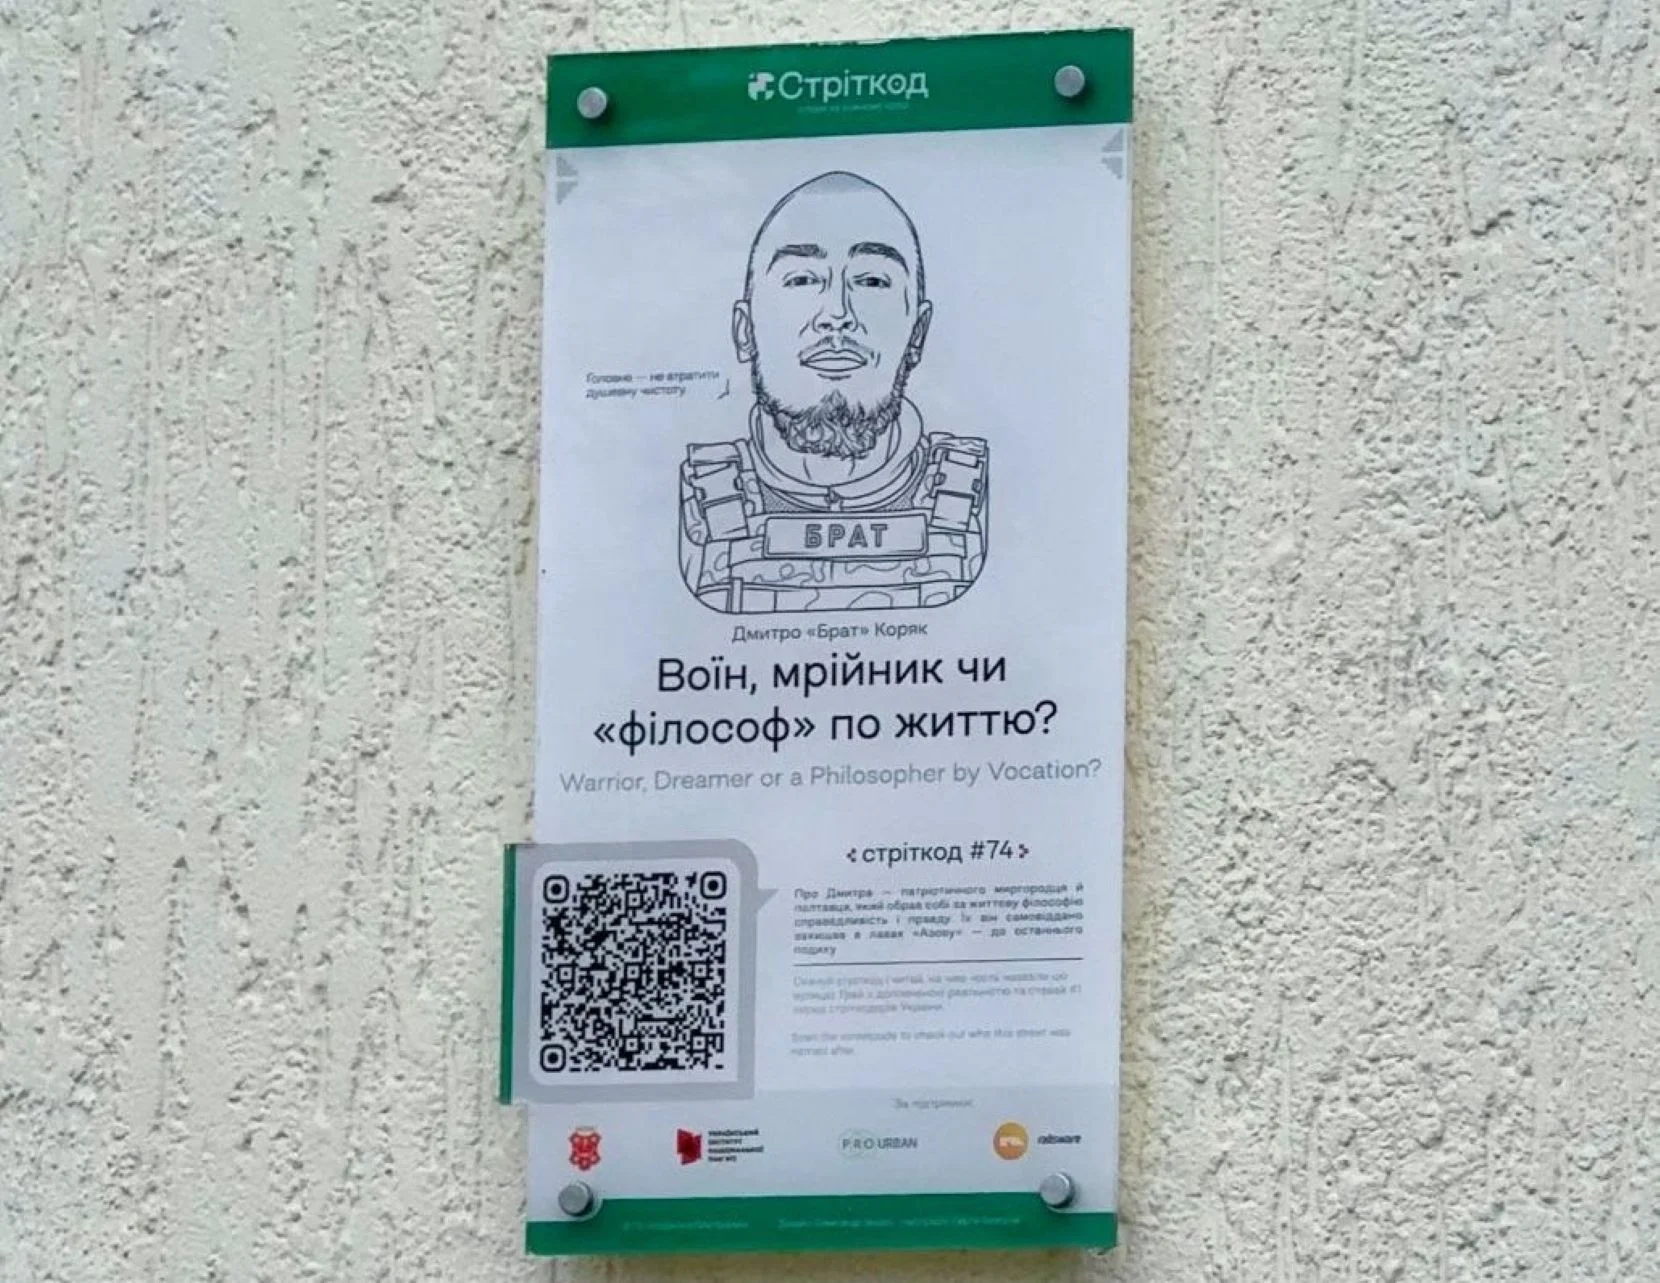 Стріткод
Головне — не втратити
душевну чистоту
БРАТ
Дмитро «Брат» Коряк
Воїн, мрійник чи
«філософ» по життю?
Warrior, Dreamer or a Philosopher by Vocation?
стріткод #74
Про Дмитра — патріотичного миргородця й
полтавця, який обрав собі за життєву філософію
справедливість і правду. Їх він самовіддано
захищав в лавах «Азову» — до останнього
подиху
Скануй стріткод і читай, на чию честь назвали цю
вулицю. Грай з доповненою реальністю та
стріткодів України.
Scan the streetcode to check out who this street was
named after.
За підтримки:
УКРАЇНСЬКИЙ
ІНСТИТУТ
НАЦІОНАЛЬНОЇ
ПАМ'ЯТІ
PRO URBAN